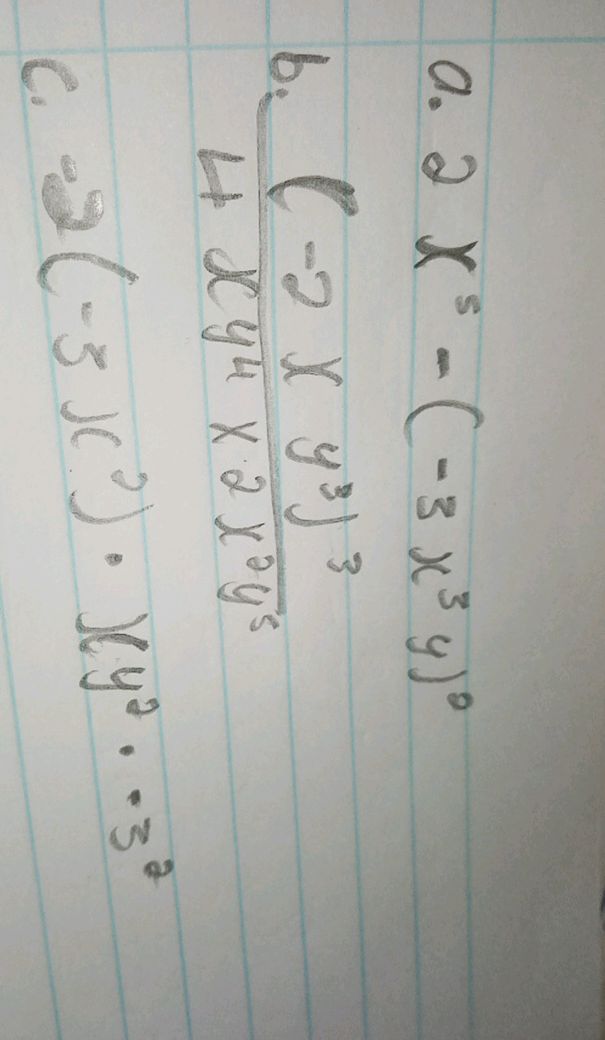 a. 2x⁵ - (-3x³y)⁰
b. (-2xy³)³
4xy⁴ x 2x²y⁵
c. -2(-3x²) · xy² · -3²